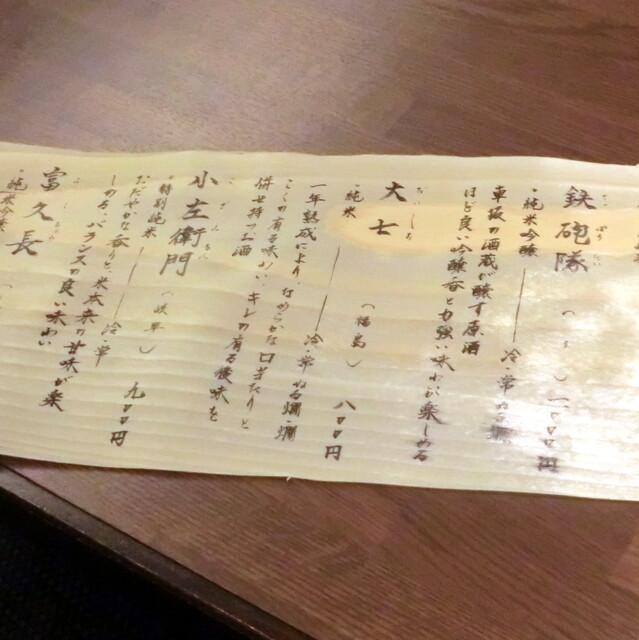 鉄砲隊
・純米吟醸 ― 冷・常・ぬる燗 一、〇〇〇円
ほど良い吟醸香と力強い味わいが楽しめる
大士
だいしち
・純米 (福島) ― 冷・常・ぬる燗・燗 八〇〇円
一年熟成により、なめらかな口当たりと
こくの有る味わい、キレの有る後味を
併せ持つお酒
小左衛門
こざえもん
・特別純米 (岐阜) ― 冷・常 九〇〇円
おだやかな香りと、米本来の甘味が楽
しめる、バランスの良い味わい
富久長
ふくちょう
・純米吟醸